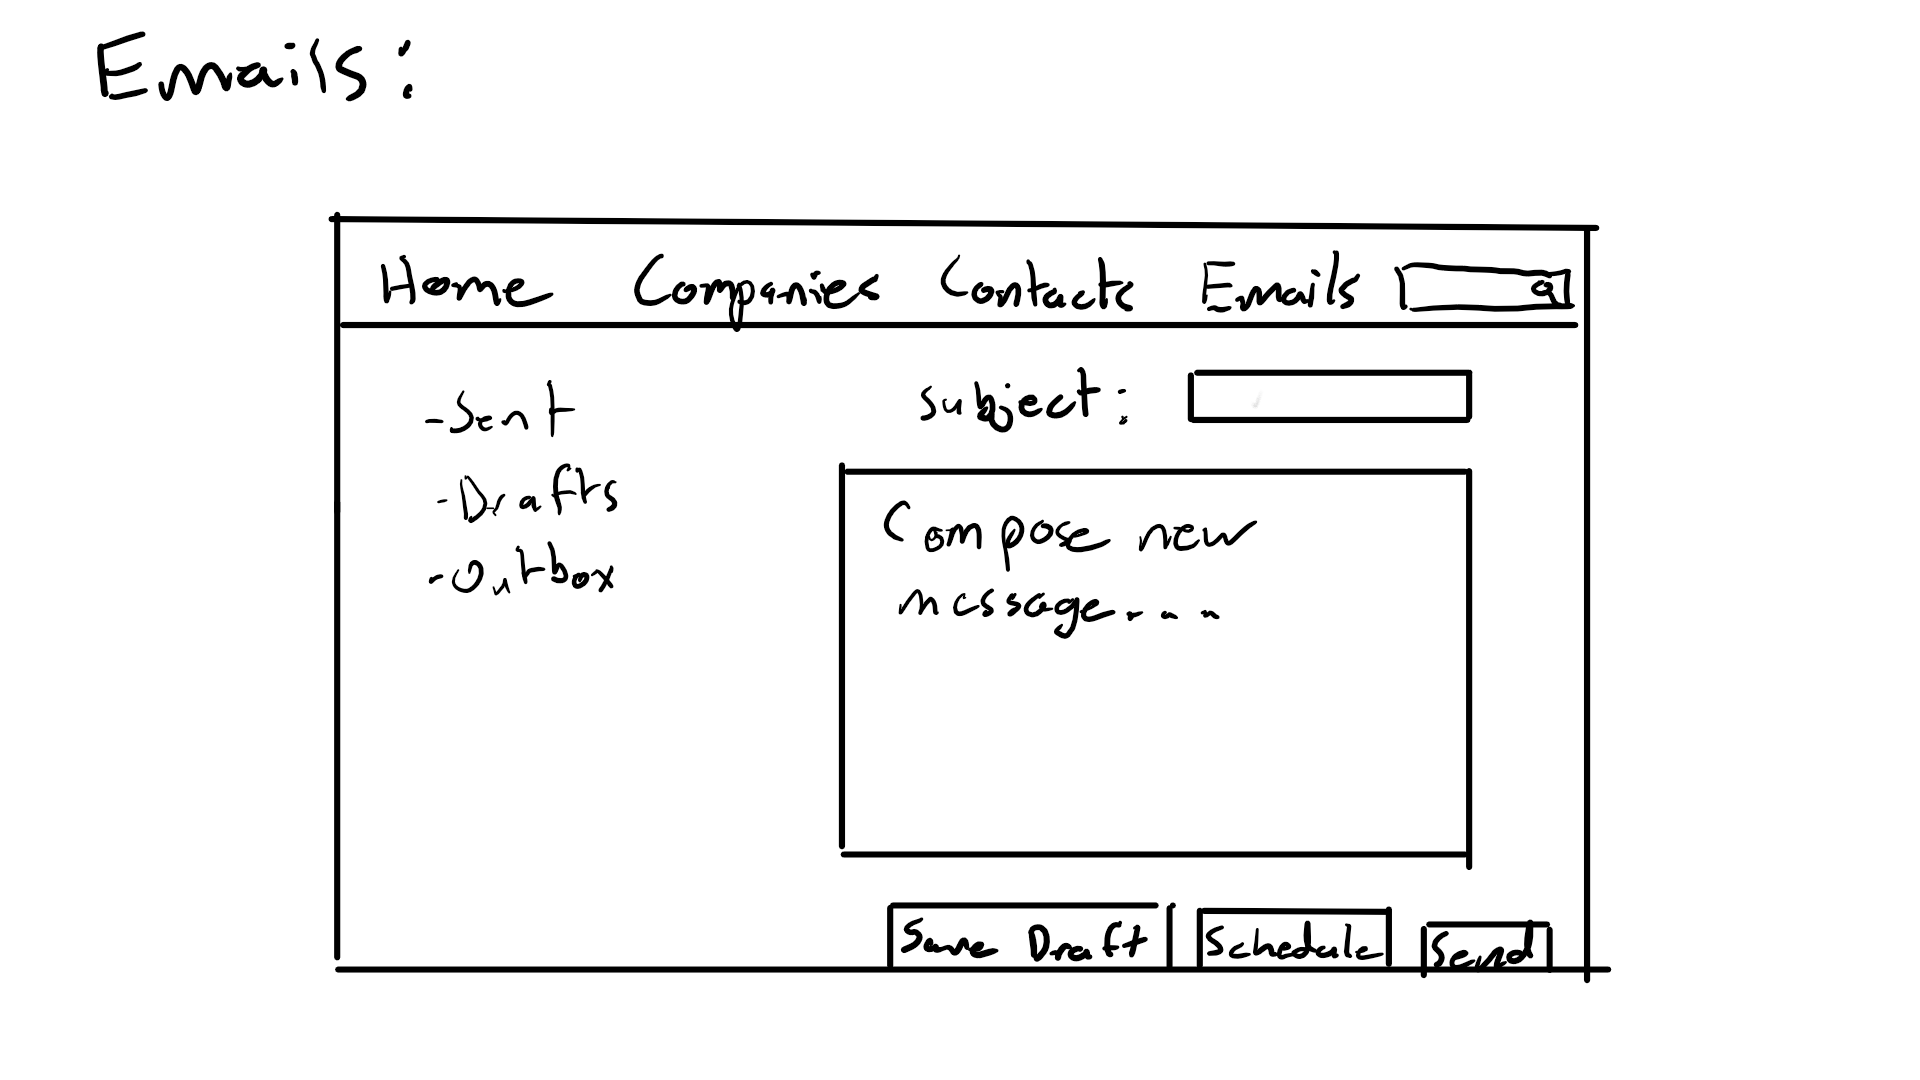 Emails:
Home Companies Contacts Emails
- Sent
- Drafts
- Outbox
subject:
Compose new
message....
Save Draft
Schedule
Send